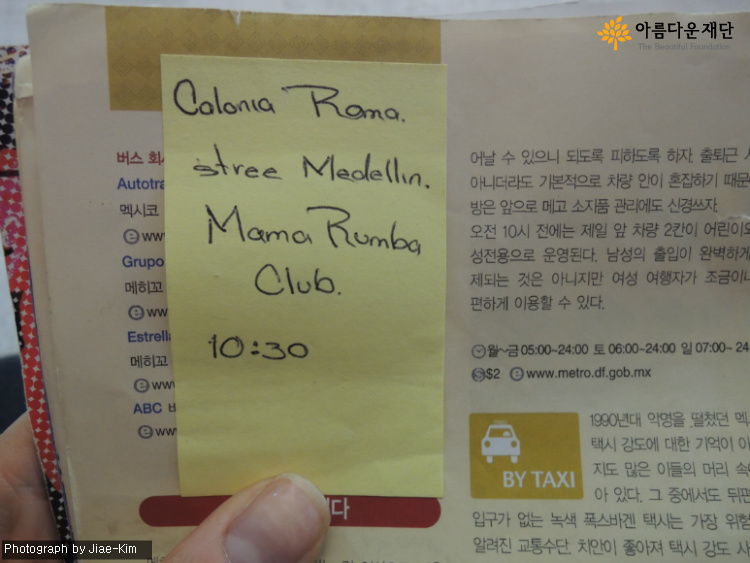 아름다운재단
The Beautiful Foundation
Colonia Roma.
stree Medellin.
Mama Rumba
Club.
10:30
버스 회사
Autotra
멕시코
www
Grupo
메히꼬
ww
Estrella
메히꼬
www
ABC 버
www
니다
어날 수 있으니 되도록 피하도록 하자. 출퇴근 시
아니더라도 기본적으로 차량 안이 혼잡하기 때문
방은 앞으로 메고 소지품 관리에도 신경쓰자.
오전 10시 전에는 제일 앞 차량 2칸이 어린이와
성전용으로 운영된다. 남성의 출입이 완벽하게
제되는 것은 아니지만 여성 여행자가 조금이나
편하게 이용할 수 있다.
월~금 05:00~24:00 토 06:00~24:00 일 07:00~ 24
$2 www.metro.df.gob.mx
BY TAXI
1990년대 악명을 떨쳤던 멕시
택시 강도에 대한 기억이 아
지도 많은 이들의 머리 속에
아 있다. 그 중에서도 뒤편
입구가 없는 녹색 폭스바겐 택시는 가장 위험
알려진 교통수단. 치안이 좋아져 택시 강도 사
Photograph by Jiae-Kim